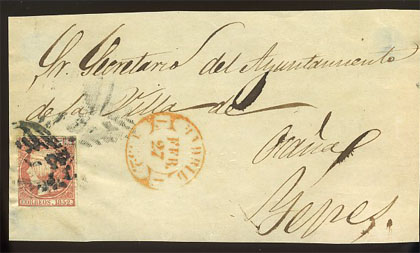 Sr. Secretario del Ayuntamiento
de la Villa de
Ocaña
Yepes.
MADRID
FEB.
27
CORREOS. 1852